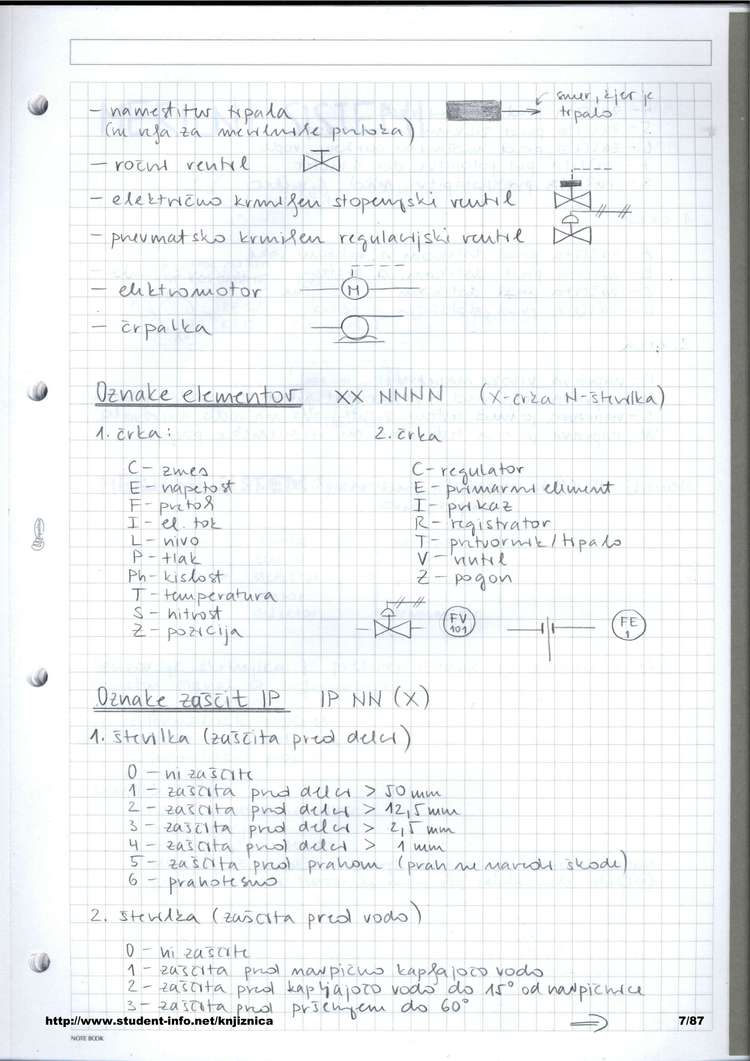 - namestitev tipala
(ni nuja za merilnike pretoka)
smer, kjer je
tipalo
- ročni ventil
- električno krmiljen stopenjski ventil
- pnevmatsko krmiljen regulacijski ventil
- elektromotor
M
- črpalka
Oznake elementov XX NNNN (X-črka N-številka)
1. črka: 2. črka
C - zmes C - regulator
E - napetost E - primarni element
F - pretok I - prikaz
I - el. tok R - registrator
L - nivo T - pretvornik/tipalo
P - tlak V - ventil
Ph - kislost Z - pogon
T - temperatura
S - hitrost
Z - pozicija
FV
101
FE
1
Oznake zaščit IP IP NN (X)
1. številka (zaščita pred delci)
0 - ni zaščite
1 - zaščita pred delci > 50 mm
2 - zaščita pred delci > 12,5 mm
3 - zaščita pred delci > 2,5 mm
4 - zaščita pred delci > 1 mm
5 - zaščita pred prahom (prah ne naredi škode)
6 - prahotesno
2. številka (zaščita pred vodo)
0 - ni zaščite
1 - zaščita pred navpično kapljajočo vodo
2 - zaščita pred kapljajočo vodo do 15° od navpičnice
3 - zaščita pred pršenjem do 60°
http://www.student-info.net/knjiznica 7/87
NOTE BOOK